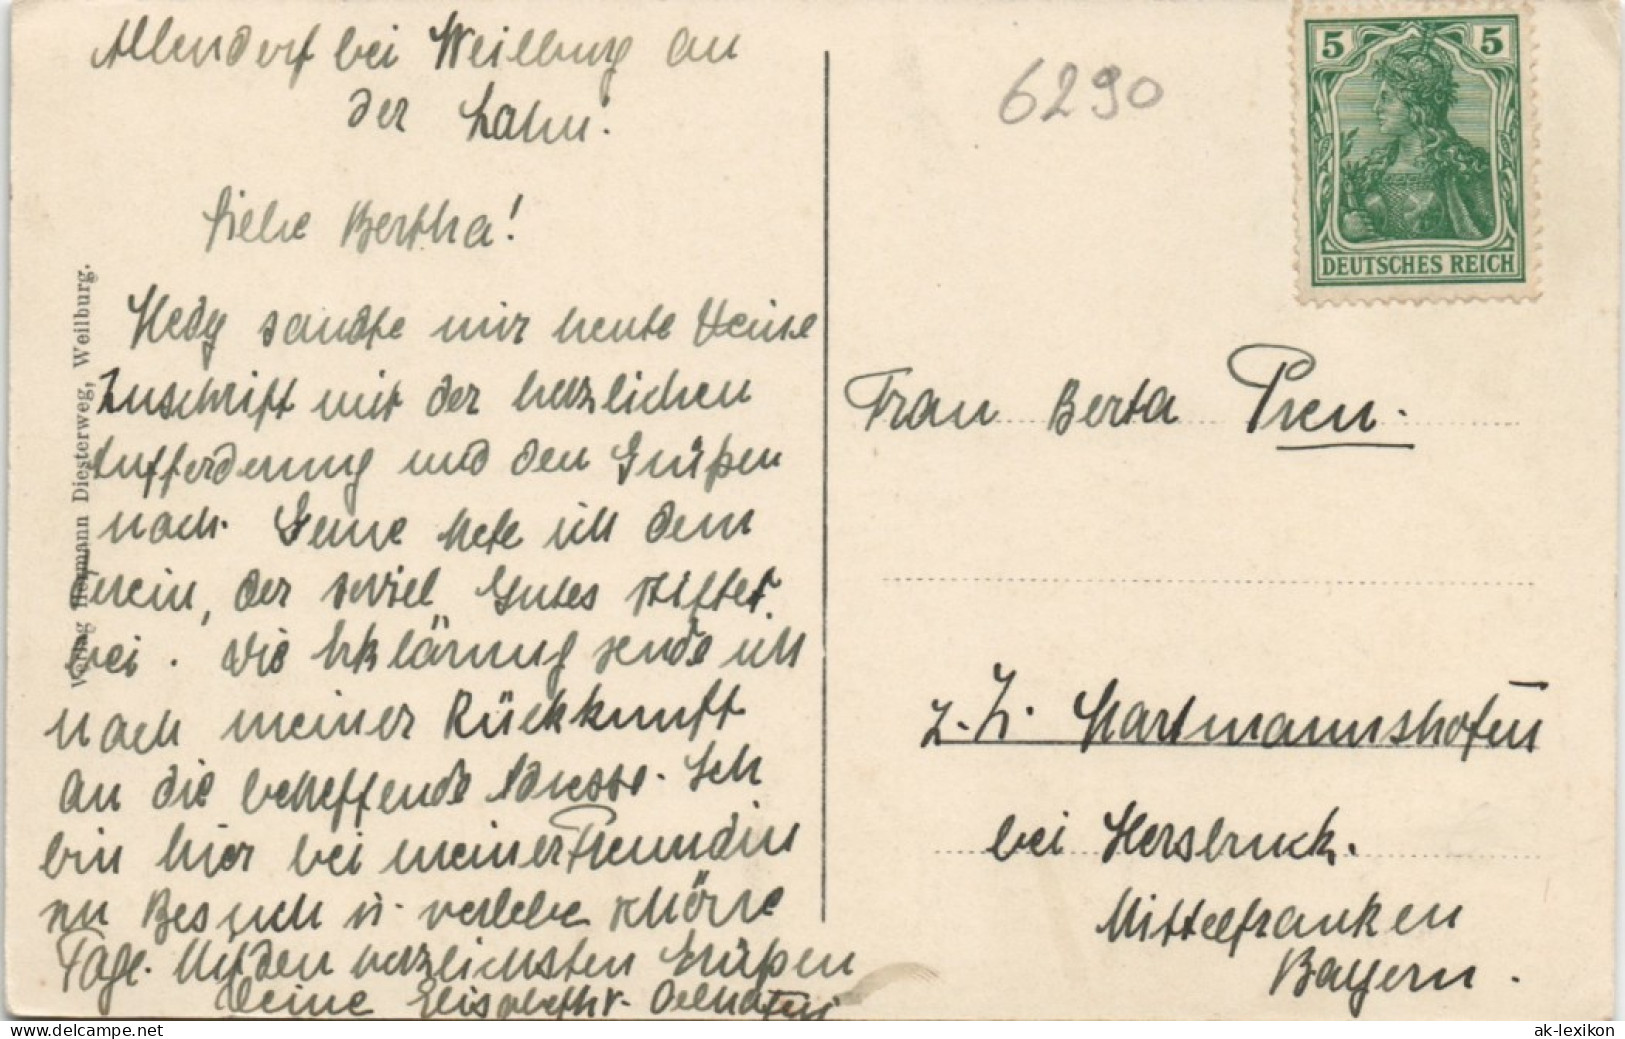 Allendorf bei Weilburg an
der Lahn.
Liebe Bertha!
Hedy sandte mir heute Deine
Zuschrift mit der herzlichen
Aufforderung und den Grüßen
nach. Gerne trete ich dem
Verein, der soviel Gutes stiftet,
bei. Die Erklärung sende ich
nach meiner Rückkunft
an die betreffende Adresse. Ich
bin hier bei meiner Freundin
zu Besuch u. verlebe schöne
Tage. Mit den herzlichsten Grüßen
Deine Elisabeth v.
Verlag Hermann Diesterweg, Weilburg.
6290
5 5
DEUTSCHES REICH
Frau Berta
z. Z. Hartmannshofen
bei Hersbruck.
Mittelfranken
Bayern.
www.delcampe.net
ak-lexikon